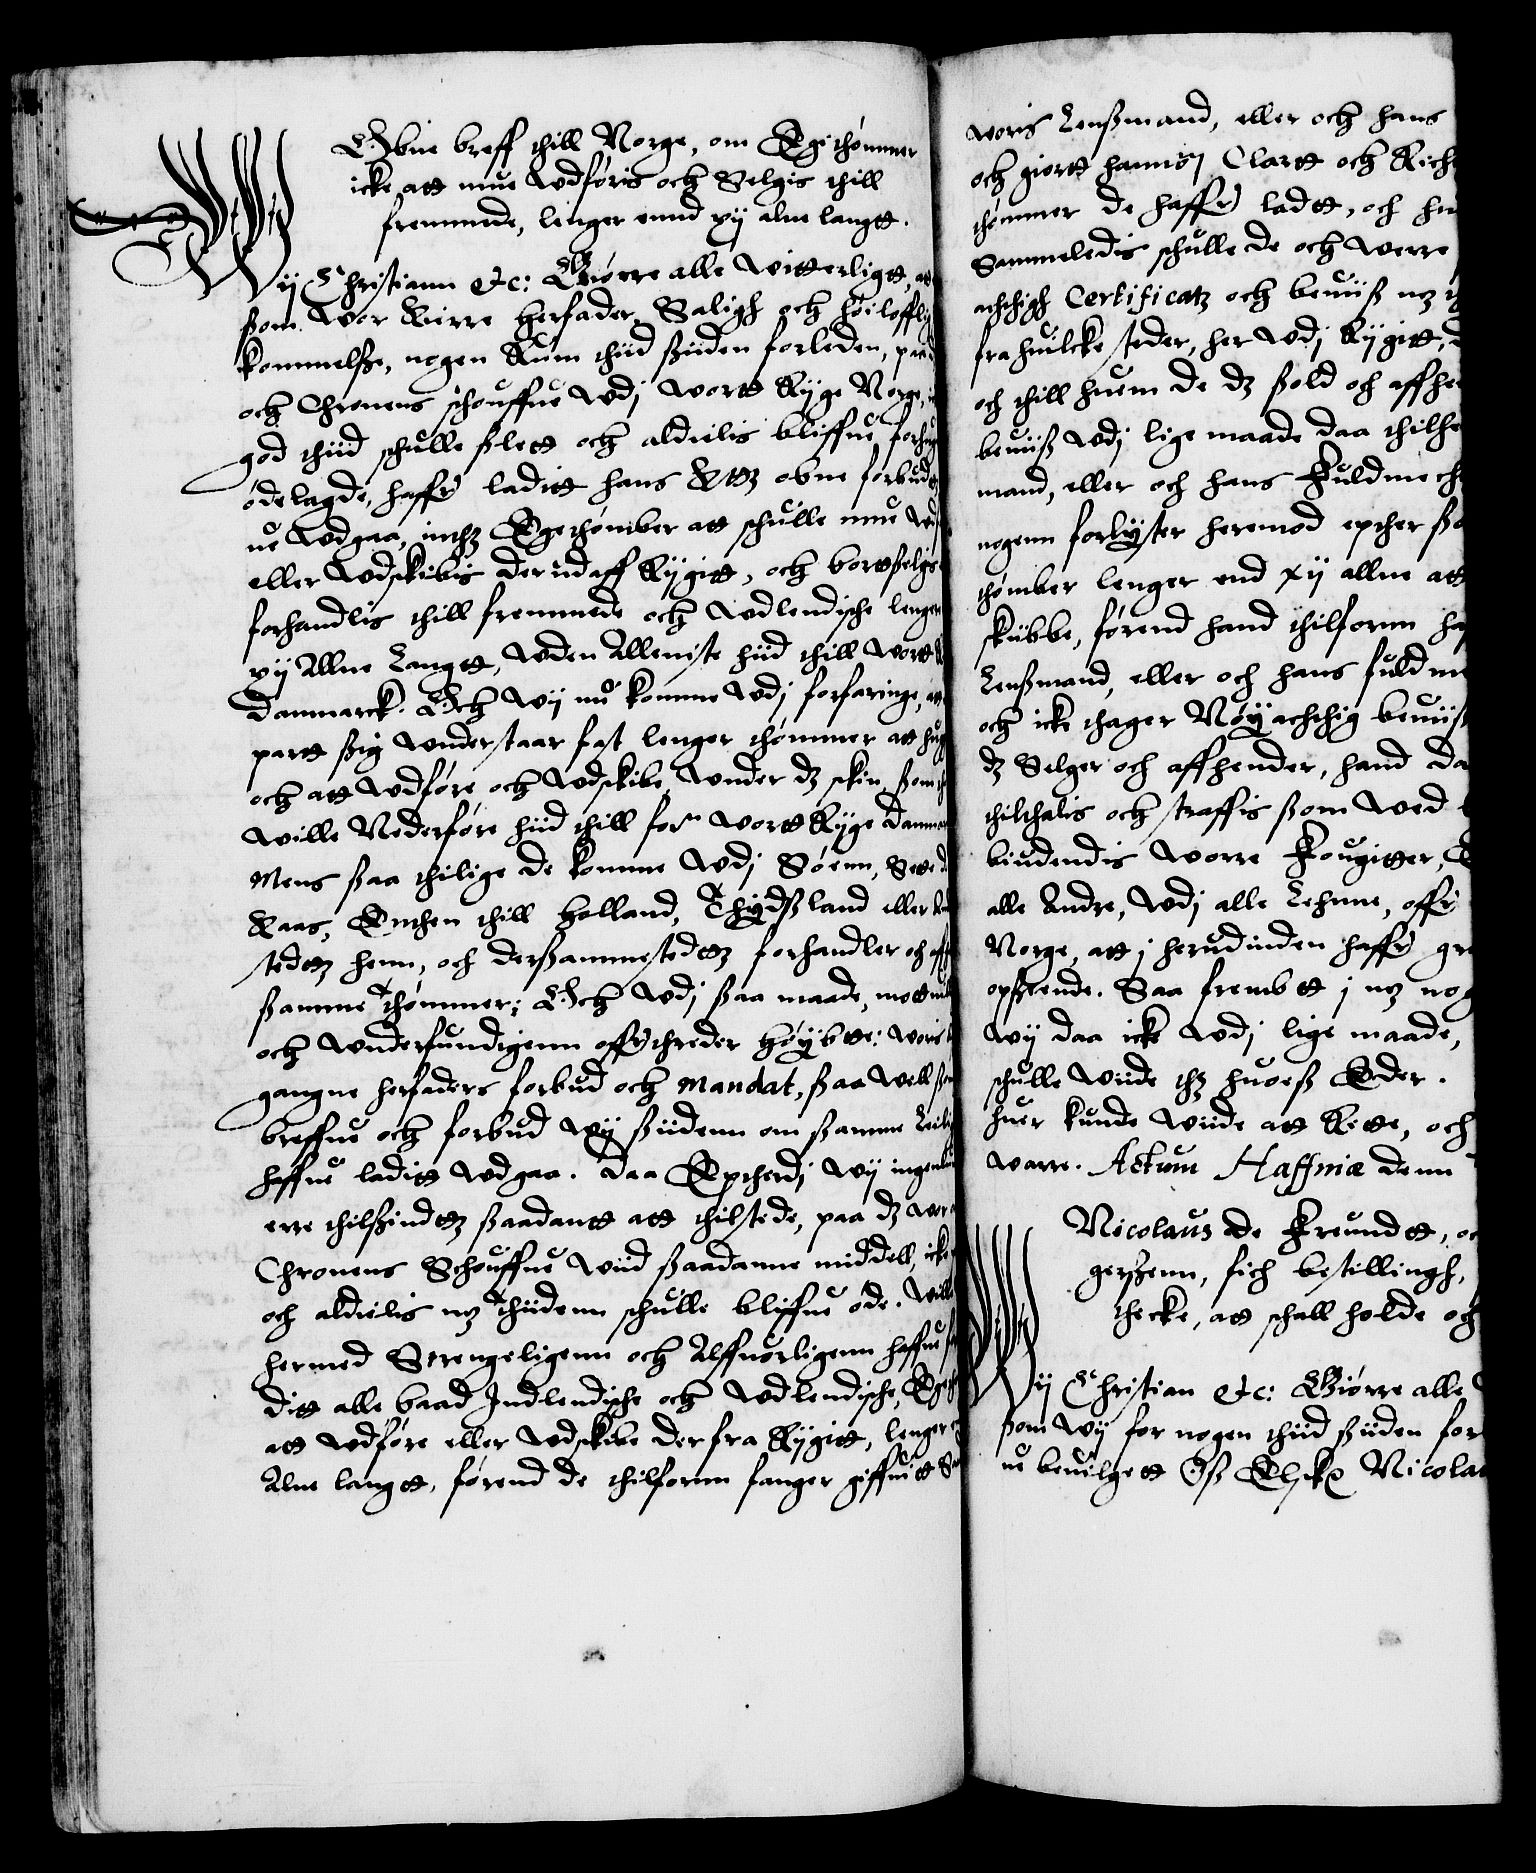 Obne breff thill Norge, om Egethømmer
icke att mue Udføris och Selgis thill
fremmede, lenger ennd xij alne langtt.
Wij Christiann etc: Giøre alle witterligtt, at
som wor Kierre herfader, Saligh och høiloffligh
kommelsse, nogen Rum thiid siiden forleden, paa
och Chronens schouffue Udj wortt Ryge Norge,
god thiid schulle slett och aldielis bliffue forhug
ødelagde, haffr ladit hans Kttz obne forbudtz
ue Udgaa, inthz Egethømber att schulle mue Udf
eller Udskibis derudaff Rygitt, och bortselgis
forhandlis thill fremmede och Udlendische lenger
xij Allne Langtt, Uden Alleniste hiid thill wortt
Danmarck. Och wij nu komme Udj forfaringe, at
partt sig Understaar fast lenger thømmer att hug
och att Udføre och Udskibe, Under dz skin, som
wille Nederføre hiid thill for wortt Ryge Danmar
Mens saa thilige de komme Udj Søenn, Sette d
Kaas, Enthen thill Holland, Thydsland eller An
stedtz henn, och dersammestedtz forhandler och aff
samme Thømmer; Och Udj saa maade, mottuil
och Underfundigenn offrthreder høybtte: woris
gangne herfaders forbud och Mandat, saa well som
breffue och forbud wy siidenn om samme Leilig
haffue ladit Udgaa. Daa Eptherdj wij ingenlun
erre thilsindtz saadantt att thilstede, paa dz wor
Chronens Schouffue wiid saadanne middell, icke
och aldielis mz Thiidenn schulle bliffue øde. Wille
hermed Strengeligenn och Alffuorligenn haffue for
ditt alle baad Indlendische och Udlendische, Egeth
att Udføre eller Udskibe derfra Rygitt, lenger
Alne langtt, førend de thilfornn fanger giffuitt
woris Lensmand, eller och hans
och giortt hannsj Clartt och Rich
thømmer de haffr ladtt, och hu
Sammeledis schulle de och werre
achthigh Certificatz och beuiis mz
fra huilcke steder, her Udj Rygitt,
och thill huem de dz sold och affhe
beuiis Udj lige maade daa thilhe
mand, eller och hans Fuldmecht
nogenn forlyster heremod epther sa
thømber lenger end xij allne att
skibbe, førend hand thilfornn ha
Lensmand, eller och hans fuldme
och icke thager Nøyachthig beuiis
dz Selger och affhender, hand da
thilthalis och straffis som wed
biudendis worre Fougitter,
alle Andre, Udj alle Lehnne, offr
Norge, att j herudinden haffr gr
opseende. Saa frembtt j mz nog
wij daa icke Udj lige maade,
schulle wiide thz huoes Eder.
huer kunde wiide att Rette, och
warre. Actum Haffniæ denn
Nicolaus de Freundtt, oc
gersenn, fich bestillingh,
thecke, att schall holde och
Wij Christian etc: Giørre alle
som wij for nogen thiid siiden for
ue beuilgett Oss Elske Nicolau